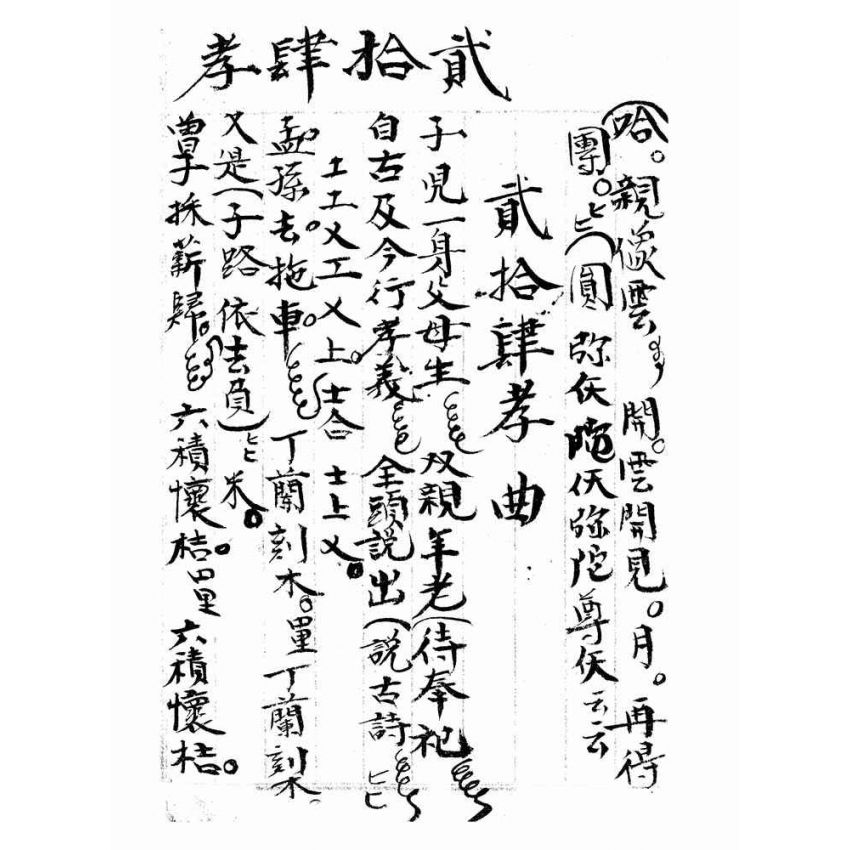 貳拾肆孝
哈。親像雲 開。雲開見。月。再得
團。匕(圓 弥仸陀仸弥陀尊仸云云
貳拾肆孝曲
子児一身父母生 双親年老(待奉祀
自古及今行孝義 全頭説出(説古詩匕
工工乂工乂上。士合 士上乂。
孟孫去拖車。 丁蘭刻木。里丁蘭刻木。
又是(子路依去負)匕 米。
曽子採薪歸。 六積懷桔。里六積懷桔。